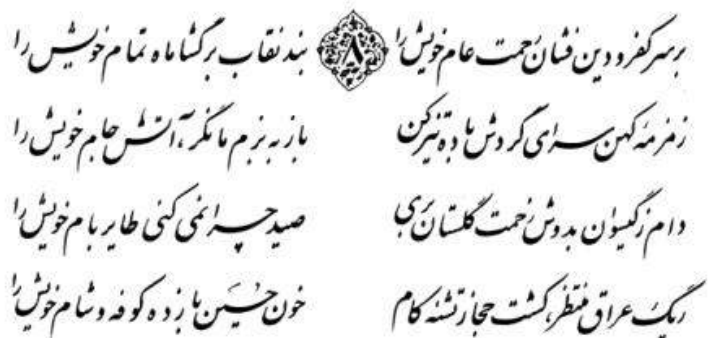 بر سر کفر و دین فشان رحمت عام خویش را ۸ بند نقاب بر گشا ماه تمام خویش را
زمزمهٔ کهن سرای گردش باده تیز کن باز به بزم ما نگر، آتش جام خویش را
دام ز گیسوان بدوش زحمت گلستان بری صید چرا نمی کنی طایر بام خویش را
ریگ عراق منتظر، کشت حجاز تشنه کام خون حسین باز ده کوفه و شام خویش را